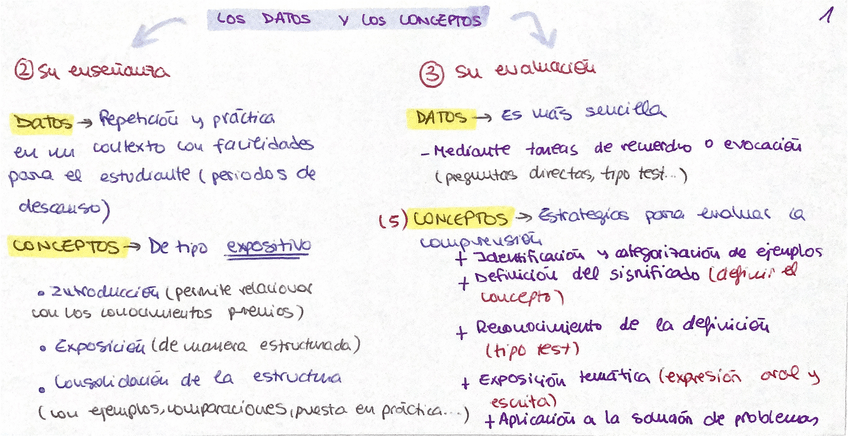 LOS DATOS Y LOS CONCEPTOS
1
② Su enseñanza
DATOS → Repetición y práctica
en un contexto con facilidades
para el estudiante (periodos de
descanso)
CONCEPTOS → De tipo expositivo
• Introducción (permite relacionar
con los conocimientos previos)
• Exposición (de manera estructurada)
• Consolidación de la estructura
(con ejemplos, comparaciones, puesta en práctica...)
③ Su evaluación
DATOS → Es más sencilla
- Mediante tareas de recuerdo o evocación
(preguntas directas, tipo test...)
(5) CONCEPTOS → Estrategias para evaluar la
comprensión
+ Identificación y categorización de ejemplos
+ Definición del significado (definir el
concepto)
+ Reconocimiento de la definición
(tipo test)
+ Exposición temática (expresión oral y
escrita)
+ Aplicación a la solución de problemas